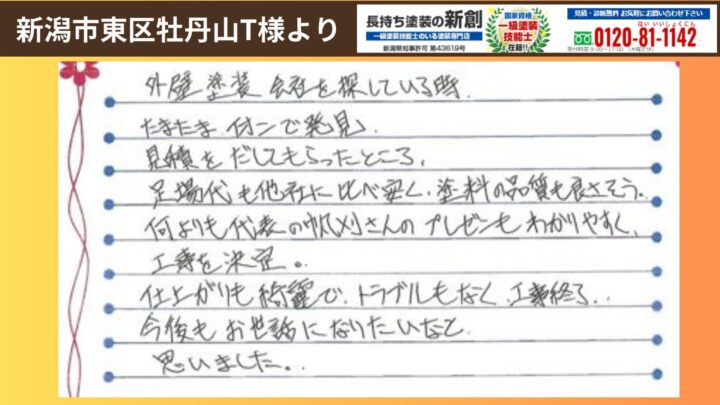 新潟市東区牡丹山T様より
長持ち塗装の新創
一級塗装技能士のいる塗装専門店
新潟県知事許可 第43619号
国家資格
一級塗装
技能士
在籍!!
見積・診断無料 お気軽にお問い合わせ下さい
はい いいしょくにん
0120-81-1142
受付時間 9:00~17:00 (木曜定休)
外壁塗装会社を探している時
たまたまイオンで発見
見積をだしてもらったところ、
足場代も他社に比べ安く、塗料の品質も良さそう。
何よりも代表の帆刈さんのプレゼンもわかりやすく、
工事を決定。
仕上がりも綺麗で、トラブルもなく、工事終了。
今後もお世話になりたいなと
思いました。